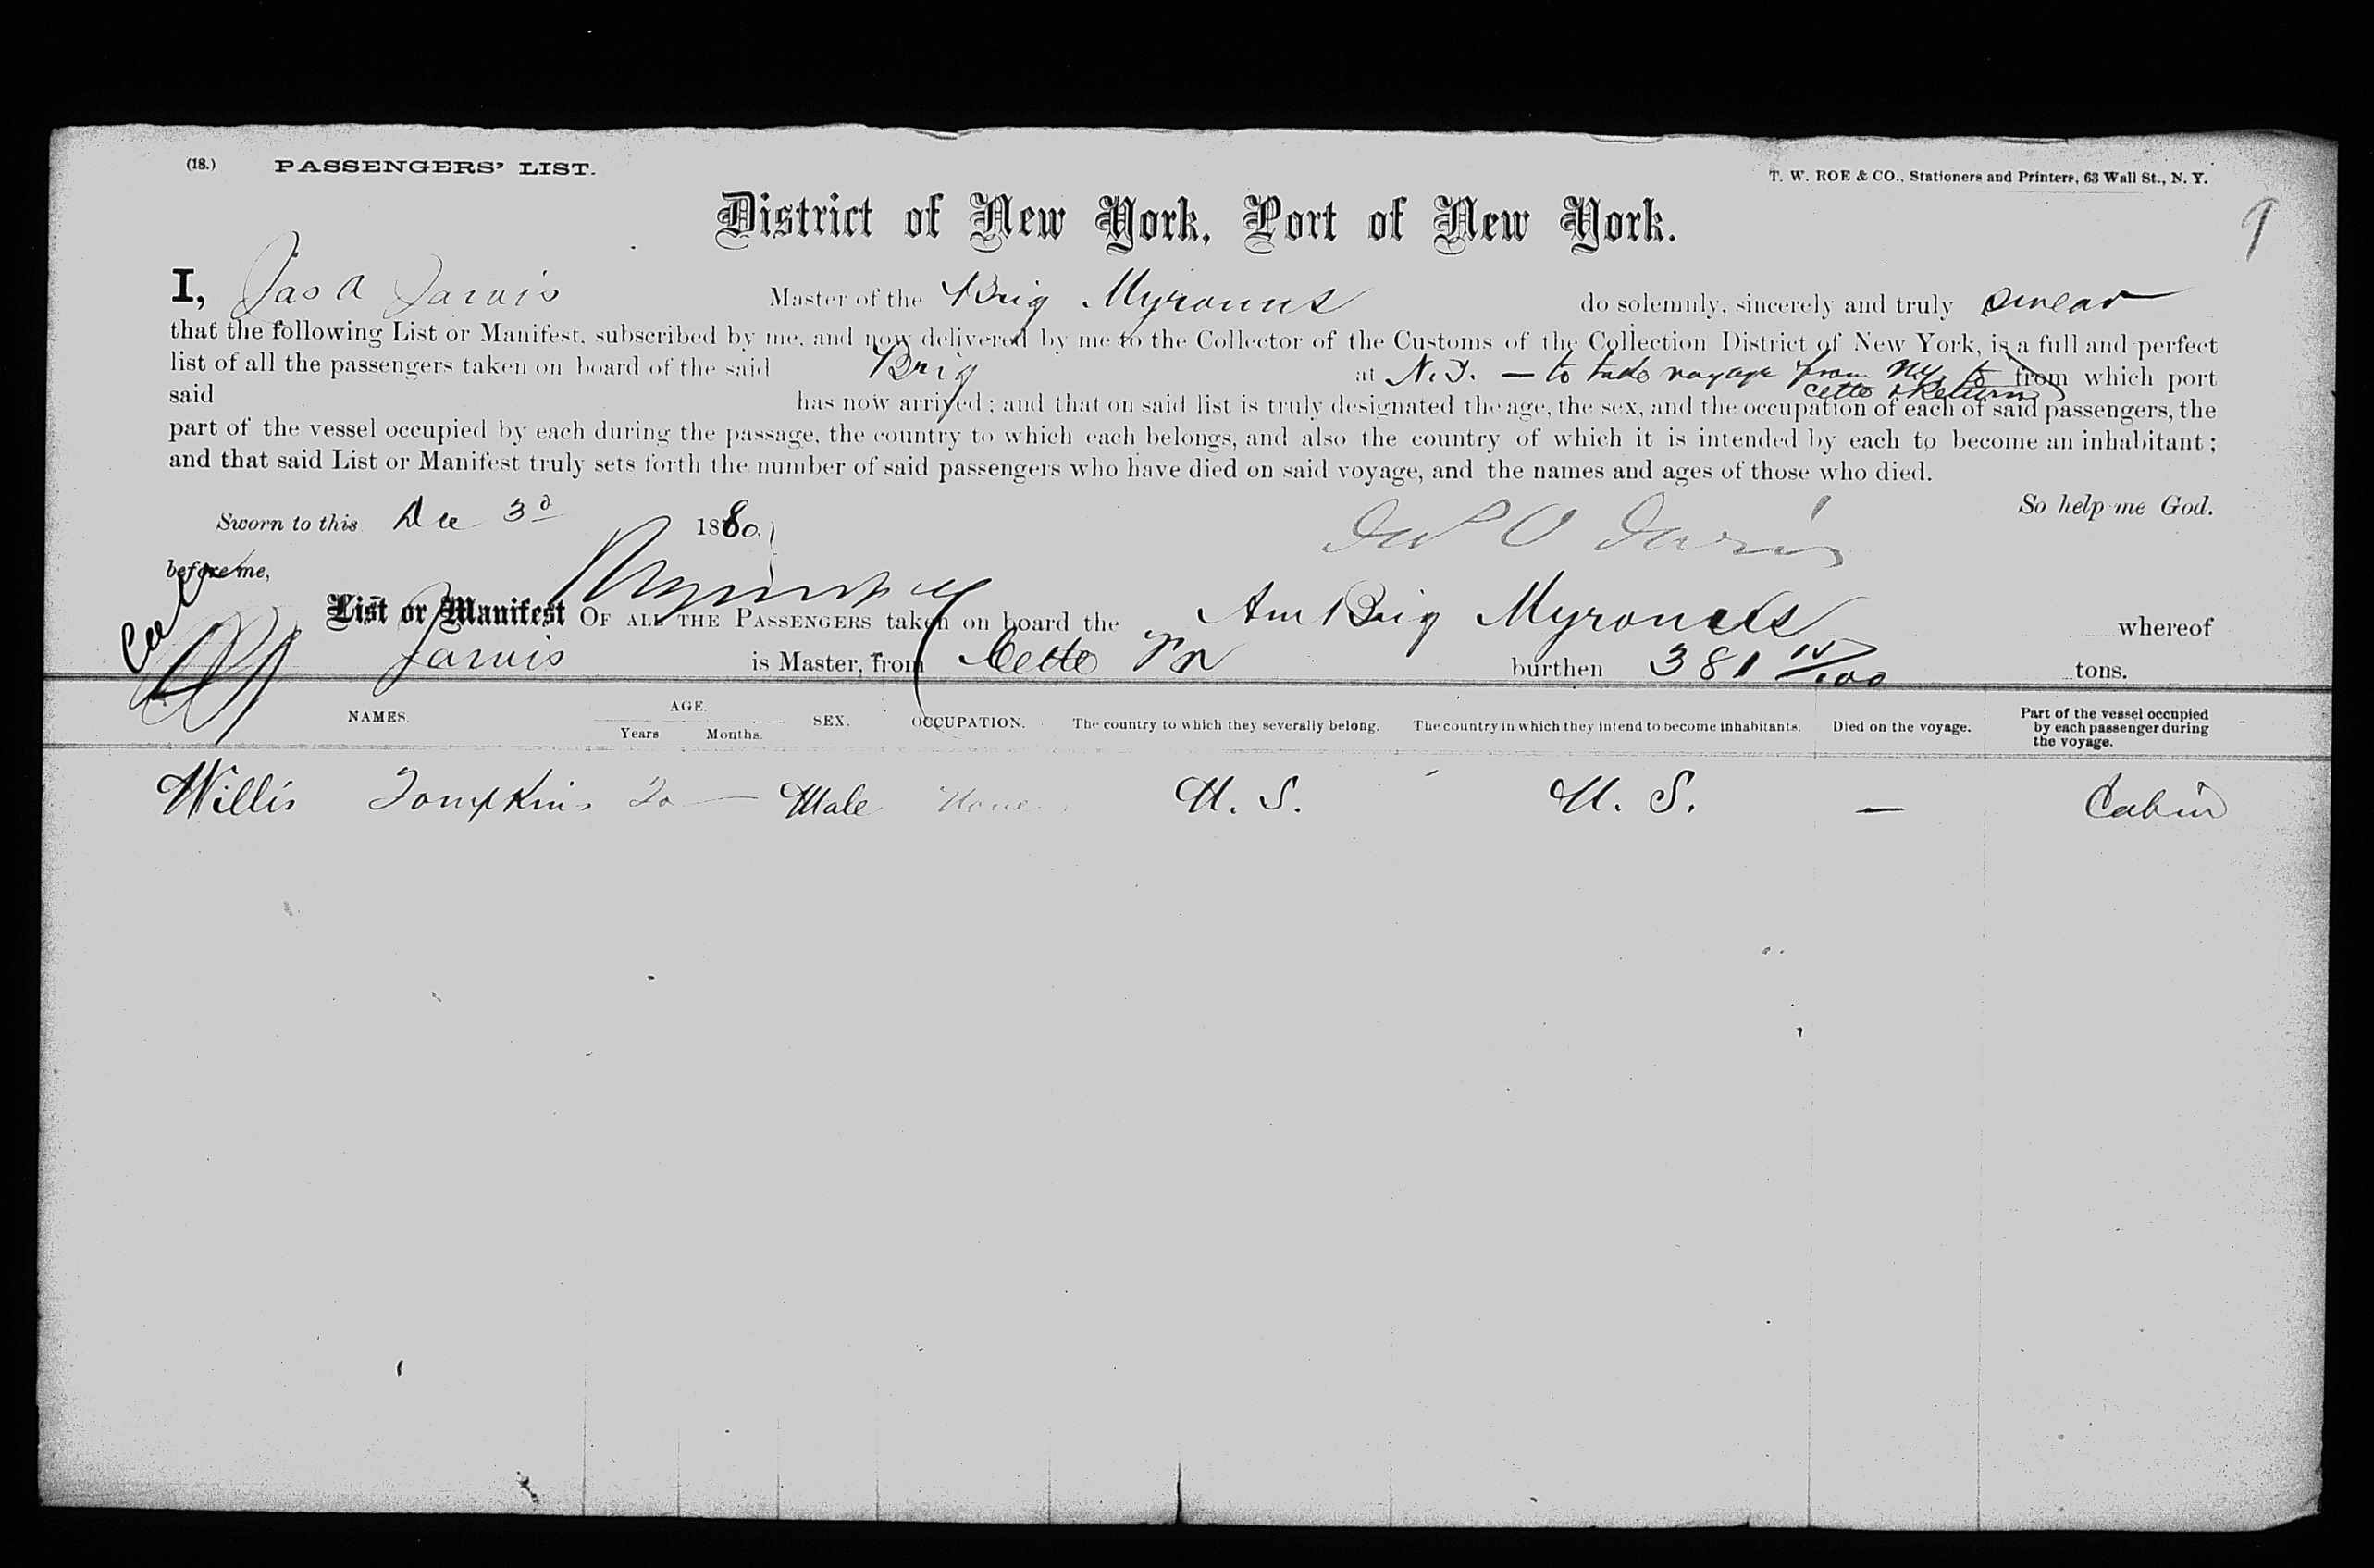 (18.) PASSENGERS' LIST.
T. W. ROE & CO., Stationers and Printers, 63 Wall St., N. Y.
9
District of New York, Port of New York.
I, Jas A Jarvis Master of the Brig Myronus do solemnly, sincerely and truly swear
that the following List or Manifest, subscribed by me, and now delivered by me to the Collector of the Customs of the Collection District of New York, is a full and perfect
list of all the passengers taken on board of the said Brig at N.Y. — to take voyage from NY. to from which port
Cette & Return
said has now arrived; and that on said list is truly designated the age, the sex, and the occupation of each of said passengers, the
part of the vessel occupied by each during the passage, the country to which each belongs, and also the country of which it is intended by each to become an inhabitant;
and that said List or Manifest truly sets forth the number of said passengers who have died on said voyage, and the names and ages of those who died.
So help me God.
Sworn to this Dec 3d 1880.
before me,
List or Manifest OF ALL THE PASSENGERS taken on board the Am Brig Myronus whereof
Jarvis is Master, from Cette burthen 381 15/100 tons.
NAMES. AGE. Years Months. SEX. OCCUPATION. The country to which they severally belong. The country in which they intend to become inhabitants. Died on the voyage. Part of the vessel occupied by each passenger during the voyage.
Willis Tompkins 20 — Male None U. S. U. S. — Cabin